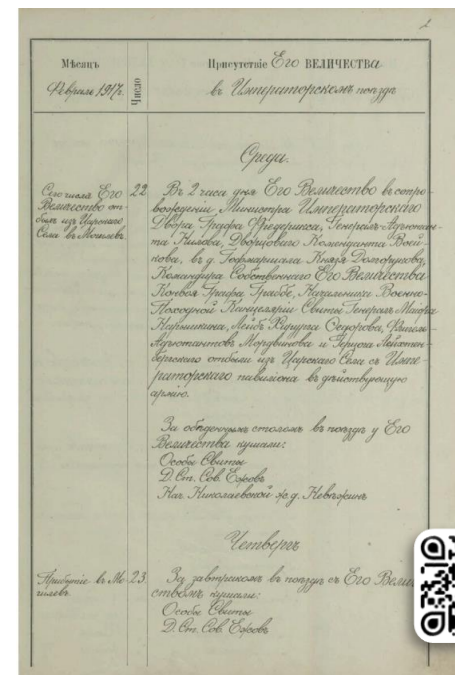 Мѣсяцъ
Февраль 1917г.
Число
Присутствіе Его ВЕЛИЧЕСТВА
въ Императорскомъ поѣздѣ
Среда.
Сего числа Его
Величество от-
былъ изъ Царскаго
Села въ Могилевъ.
22
Въ 2 часа дня Его Величество въ сопро-
вожденіи Министра Императорскаго
Двора Графа Фредерикса, Генералъ-Адъютан-
та Нилова, Дворцоваго Коменданта Воей-
кова, въ д. Гофмаршала Князя Долгорукова,
Командира Собственнаго Его Величества
Конвоя Графа Граббе, Начальника Военно-
Походной Канцеляріи Свиты Генералъ Маіора
Нарышкина, Лейбъ Хирурга Федорова, Флигель-
Адъютантовъ Мордвинова и Герцога Лейхтен-
бергскаго отбыли изъ Царскаго Села съ Импе-
раторскаго павиліона въ дѣйствующую
армію.
За обѣденнымъ столомъ въ поѣздѣ у Его
Величества кушали:
Особы Свиты
Д. Ст. Сов. Ежовъ
Нач. Николаевской ж. д. Невѣжинъ
Четвергъ
Прибытіе въ Мо-
гилевъ.
23.
За завтракомъ въ поѣздѣ съ Его Вели
ствомъ кушали:
Особы Свиты
Д. Ст. Сов. Ежовъ